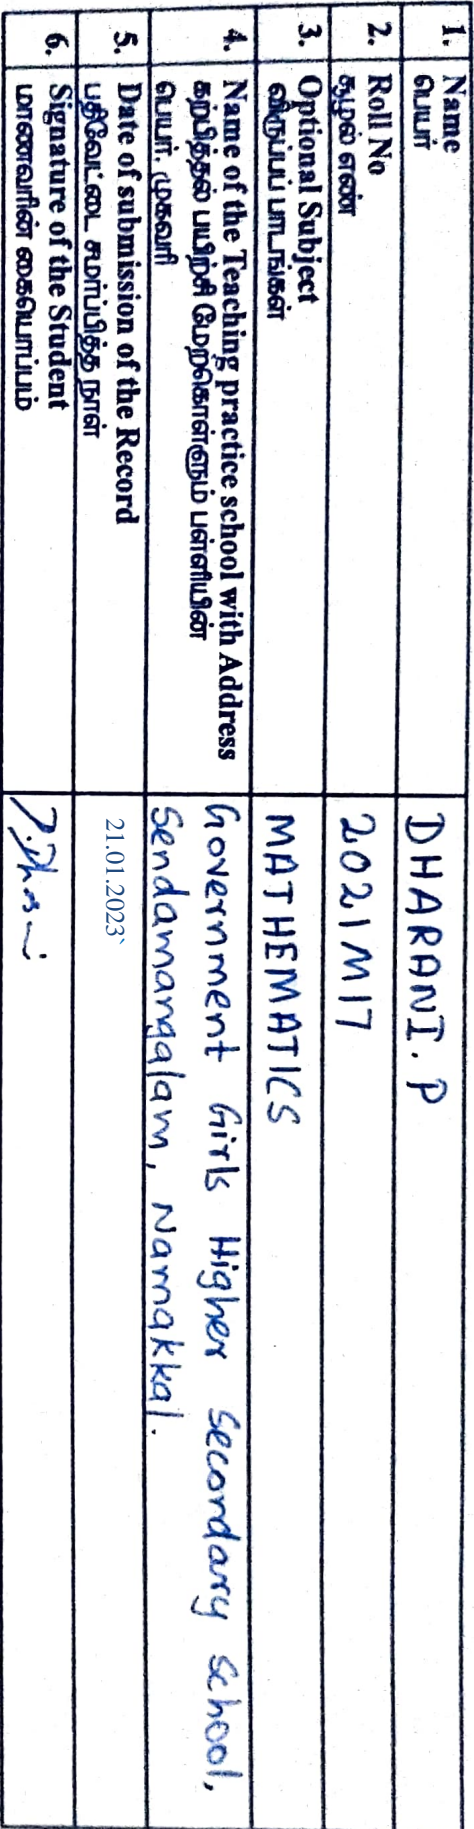 1. Name
பெயர்
DHARANI. P
2. Roll No
சுழல் எண்
2021M17
3. Optional Subject
விருப்பப் பாடங்கள்
MATHEMATICS
4. Name of the Teaching practice school with Address
கற்பித்தல் பயிற்சி மேற்கொள்ளும் பள்ளியின்
பெயர். முகவரி
Government Girls Higher Secondary School,
Sendamangalam, Namakkal.
5. Date of submission of the Record
பதிவேட்டை சமர்ப்பித்த நாள்
21.01.2023`
6. Signature of the Student
மாணவரின் கையொப்பம்